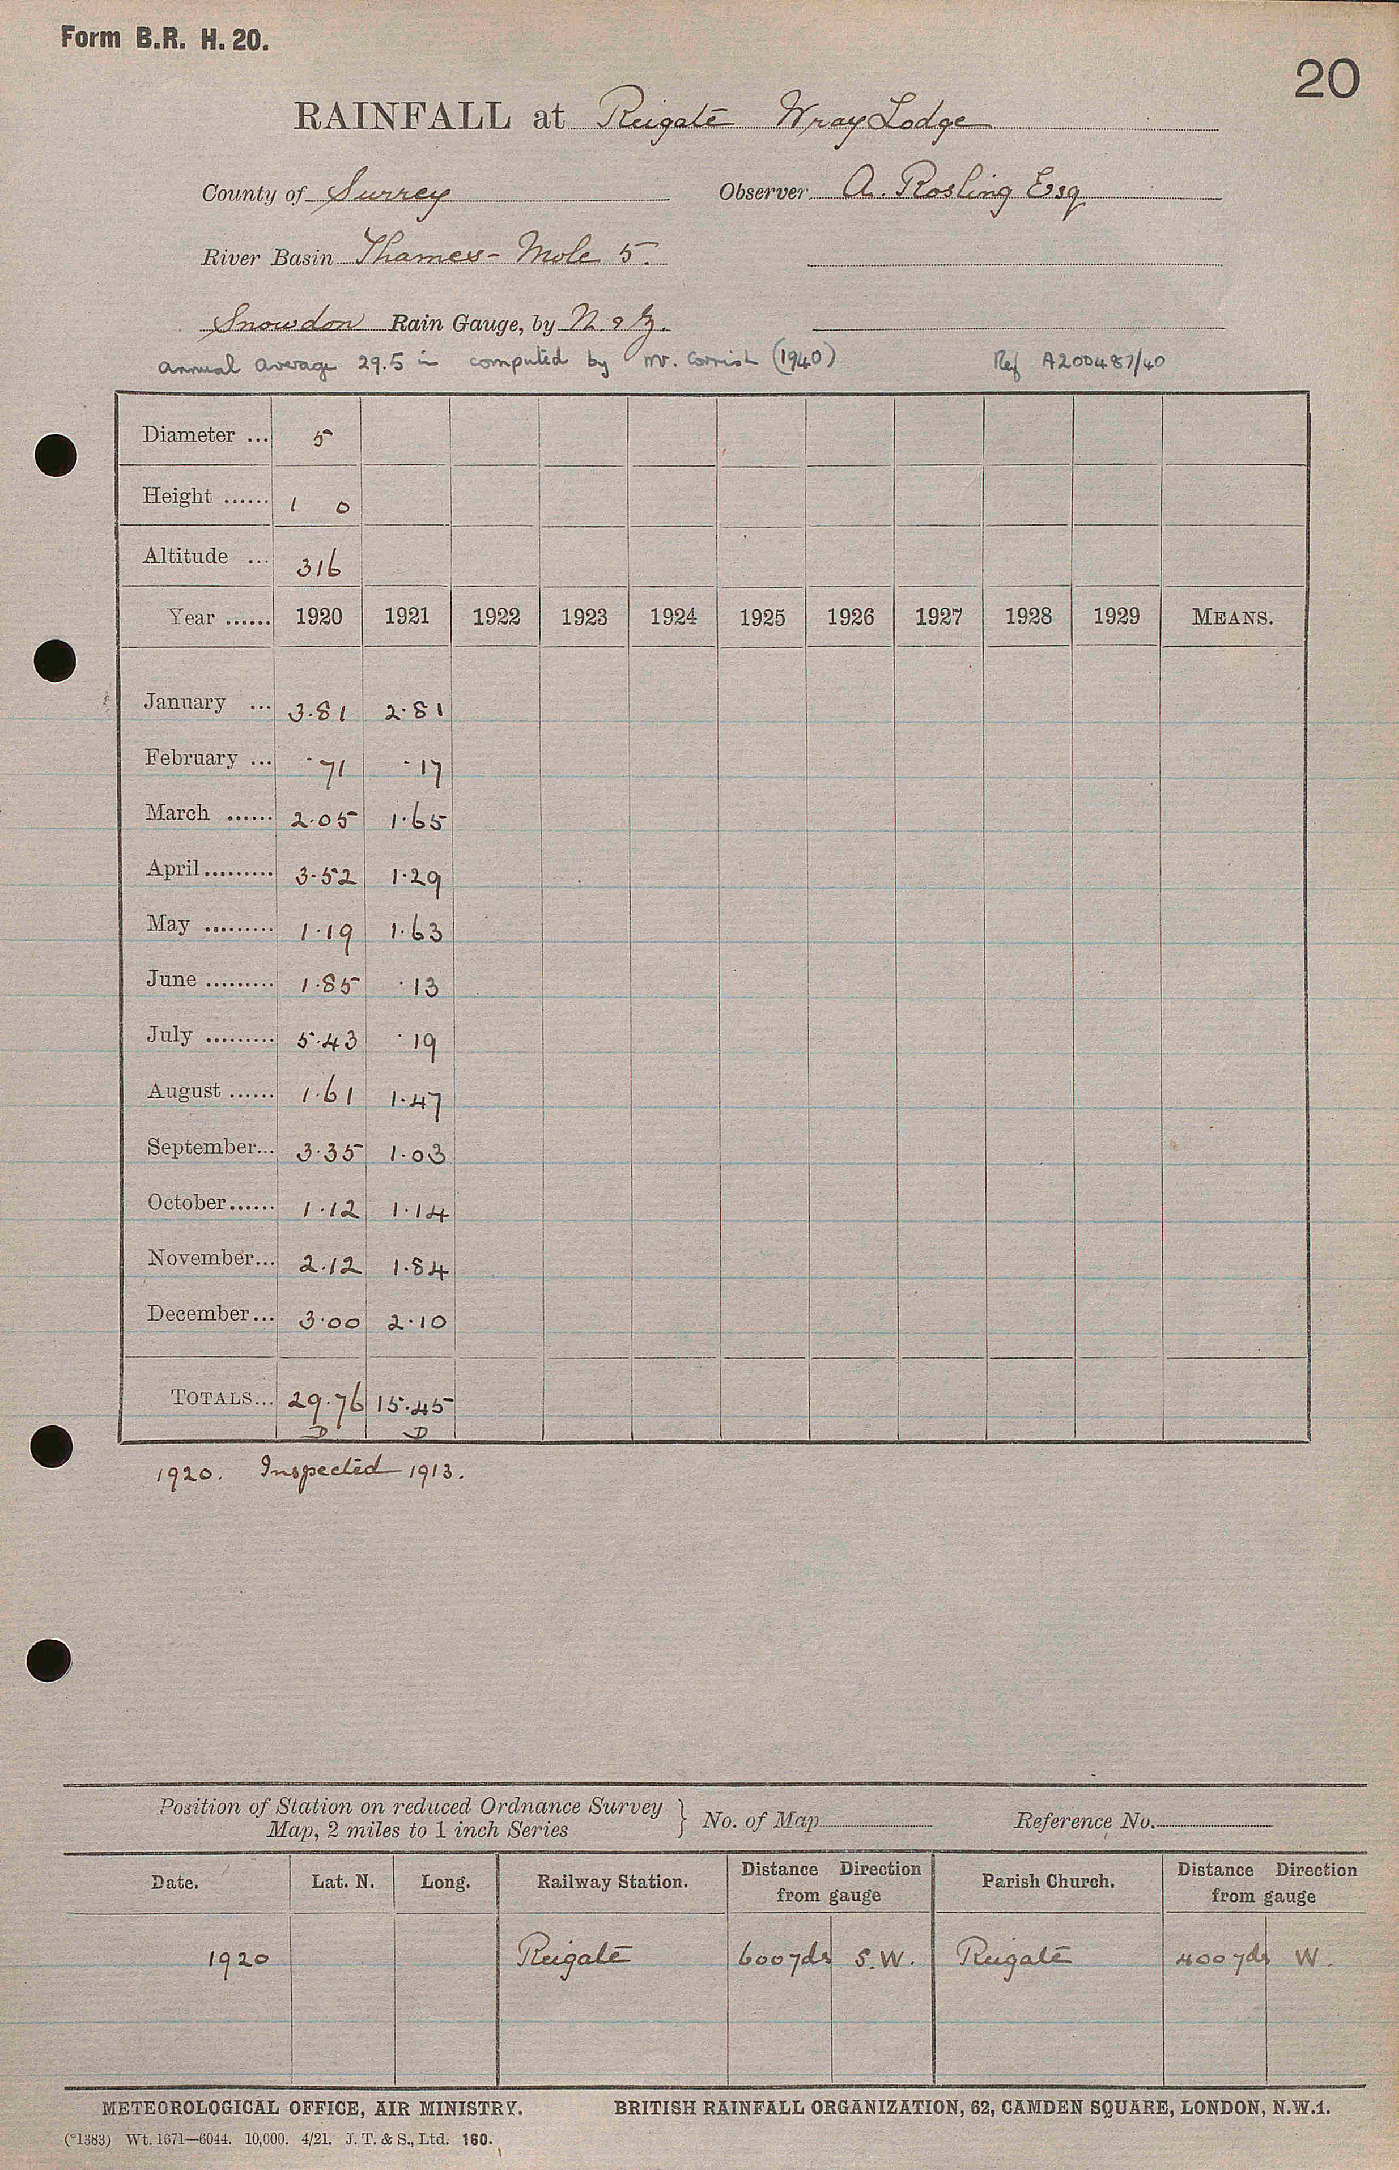 Form B.R. H. 20.
20
RAINFALL at Reigate Wray Lodge
County of Surrey Observer A. Rosling Esq
River Basin Thames - Mole 5.
Snowdon Rain Gauge, by N & Z.
annual average 29.5 in computed by Mr. Cornish (1940) Ref A200487/40
Diameter ... 5
Height ...... 1 0
Altitude ... 316
Year ...... 1920 1921 1922 1923 1924 1925 1926 1927 1928 1929 MEANS.
January ... 3.81 2.81
February ... .71 .17
March ...... 2.05 1.65
April ......... 3.52 1.29
May ......... 1.19 1.63
June ......... 1.85 .13
July ......... 5.43 .19
August ...... 1.61 1.47
September... 3.35 1.03
October...... 1.12 1.14
November... 2.12 1.84
December... 3.00 2.10
TOTALS... 29.76 15.45
D D
1920. Inspected 1913.
Position of Station on reduced Ordnance Survey
Map, 2 miles to 1 inch Series } No. of Map Reference No.
Date. Lat. N. Long. Railway Station. Distance Direction from gauge Parish Church. Distance Direction from gauge
1920 Reigate 600 yds S.W. Reigate 400 yds W.
METEOROLOGICAL OFFICE, AIR MINISTRY. BRITISH RAINFALL ORGANIZATION, 62, CAMDEN SQUARE, LONDON, N.W.1.
(*1383) Wt. 1671—6044. 10,000. 4/21. J. T. & S., Ltd. 160.